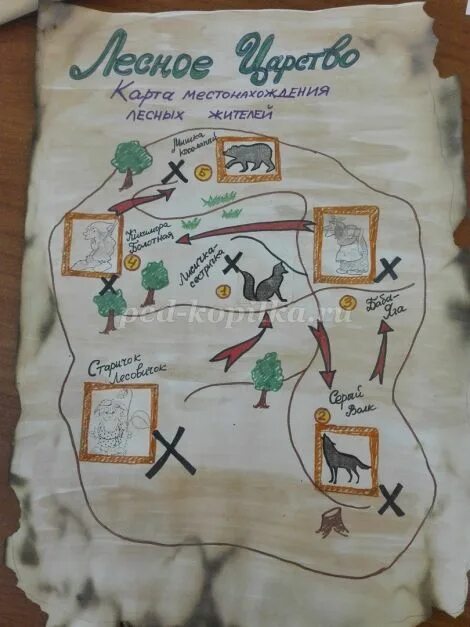 Лесное Царство
Карта местонахождения
лесных жителей
Мишка
косолапый
5
Кикимора
Болотная
4
Лисичка-
сестричка
1
3
Баба-
Яга
ped-kopilka.ru
Старичок
Лесовичок
2
Серый
Волк